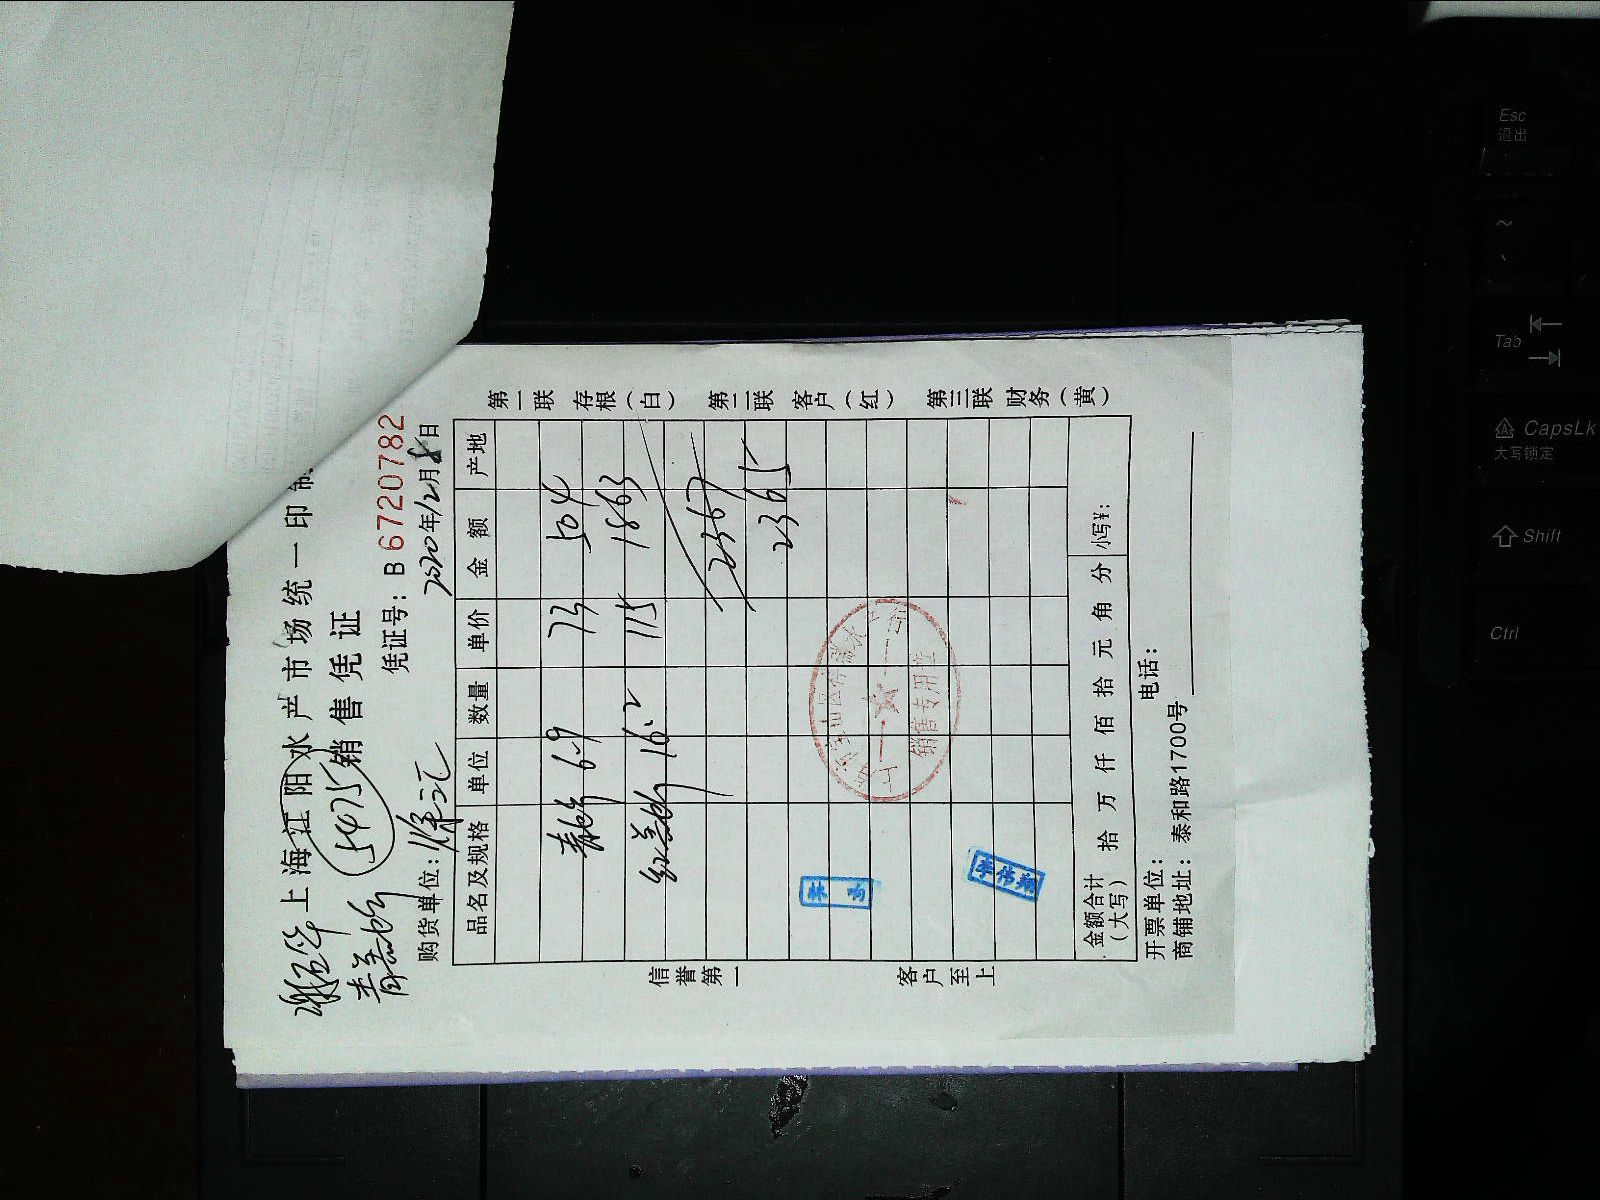 上海江阳水产市场统一印制
销售凭证
5475
凭证号：B 6720782
购货单位：徐汇
2020年12月8日
品名及规格 单位 数量 单价 金额 产地
6.9 73 504
16.2 115 1863
2367
2365
金额合计（大写） 拾 万 仟 佰 拾 元 角 分 小写¥：
开票单位：
电话：
商铺地址：泰和路1700号
信誉第一
客户至上
第一联 存根（白） 第二联 客户（红） 第三联 财务（黄）
销售专用章
李伟翔
Esc
退出
~
Tab
CapsLk
大写锁定
Shift
Ctrl